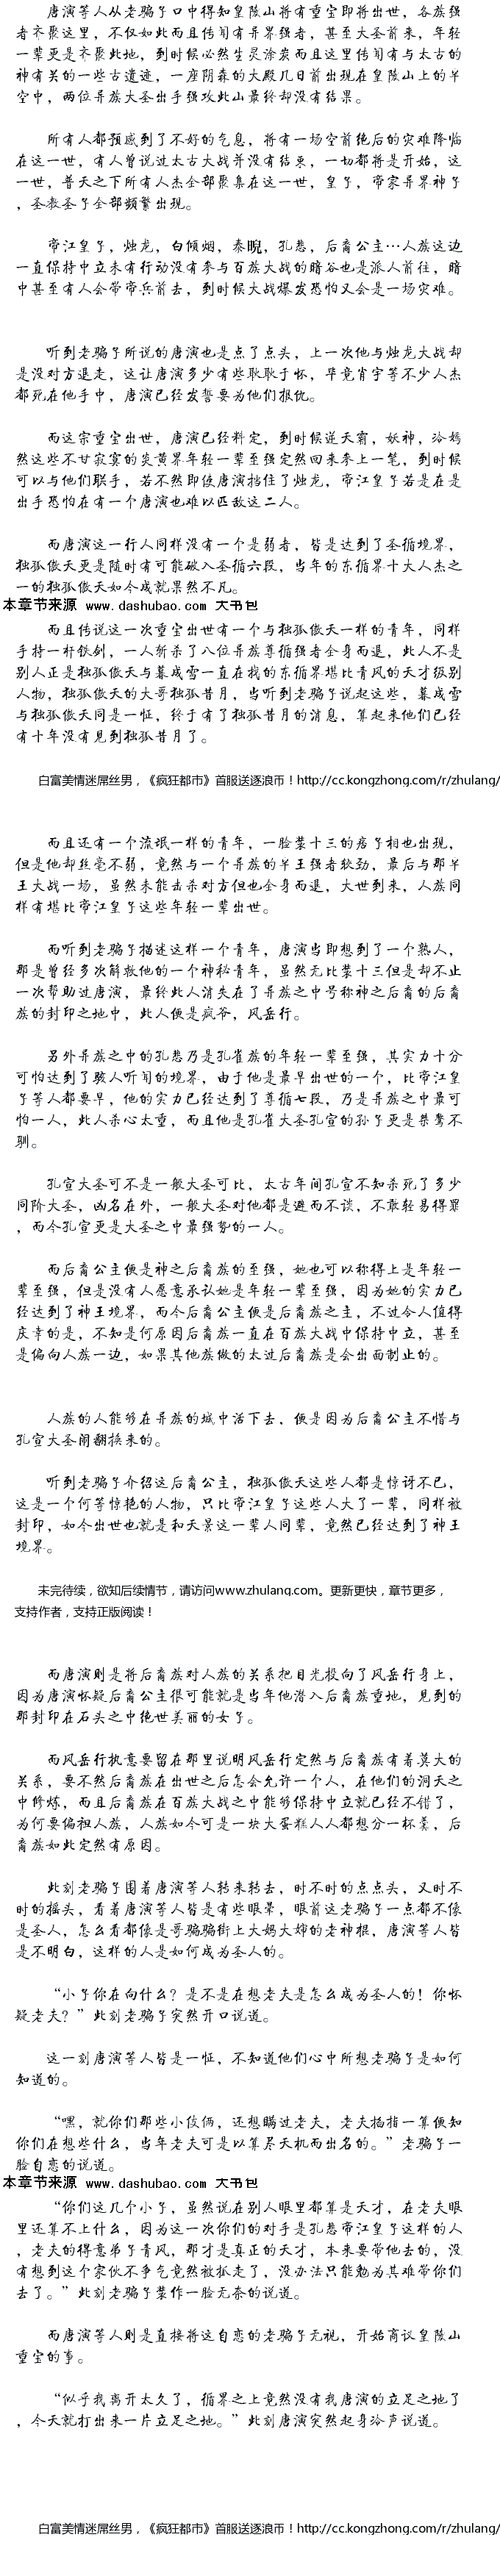 唐演等人从老骗子口中得知皇陵山将有重宝即将出世，各族强
者齐聚这里，不仅如此而且传闻有异界强者，甚至大圣前来，年轻
一辈更是齐聚此地，到时候必然生灵涂炭而且这里传闻有与太古的
神有关的一些古遗迹，一座阴森的大殿几日前出现在皇陵山上的半
空中，两位异族大圣出手强攻此山最终却没有结果。
所有人都预感到了不好的气息，将有一场空前绝后的灾难降临
在这一世，有人曾说过太古大战并没有结束，一切都将是开始，这
一世，普天之下所有人杰全部聚集在这一世，皇子，帝家异界神子
，圣教圣子全部频繁出现。
帝江皇子，烛龙，白倾烟，秦睨，孔慈，后裔公主…人族这边
一直保持中立未有行动没有参与百族大战的暗谷也是派人前往，暗
中甚至有人会带帝兵前去，到时候大战爆发恐怕又会是一场灾难。
听到老骗子所说的唐演也是点了点头，上一次他与烛龙大战却
是没对方退走，这让唐演多少有些耿耿于怀，毕竟肖宇等不少人杰
都死在他手中，唐演已经发誓要为他们报仇。
而这宗重宝出世，唐演已经料定，到时候逆天霸，妖神，冷嫣
然这些不甘寂寞的炎黄界年轻一辈至强定然回来参上一笔，到时候
可以与他们联手，若不然即使唐演挡住了烛龙，帝江皇子若是在是
出手恐怕在有一个唐演也难以匹敌这二人。
而唐演这一行人同样没有一个是弱者，皆是达到了圣循境界，
独孤傲天更是随时有可能破入圣循六段，当年的东循界十大人杰之
一的独孤傲天如今成就果然不凡。
本章节来源 www.dashubao.com 大书包
而且传说这一次重宝出世有一个与独孤傲天一样的青年，同样
手持一杆铁剑，一人斩杀了八位异族尊循强者全身而退，此人不是
别人正是独孤傲天与暮成雪一直在找的东循界堪比青风的天才级别
人物，独孤傲天的大哥独孤昔月，当听到老骗子说起这些，暮成雪
与独孤傲天同是一怔，终于有了独孤昔月的消息，算起来他们已经
有十年没有见到独孤昔月了。
白富美情迷屌丝男，《疯狂都市》首服送逐浪币！http://cc.kongzhong.com/r/zhulang/
而且还有一个流氓一样的青年，一脸装十三的痞子相也出现，
但是他却丝毫不弱，竟然与一个异族的半王强者较劲，最后与那半
王大战一场，虽然未能击杀对方但也全身而退，大世到来，人族同
样有堪比帝江皇子这些年轻一辈出世。
而听到老骗子描述这样一个青年，唐演当即想到了一个熟人，
那是曾经多次解救他的一个神秘青年，虽然无比装十三但是却不止
一次帮助过唐演，最终此人消失在了异族之中号称神之后裔的后裔
族的封印之地中，此人便是疯爷，风岳行。
另外异族之中的孔慈乃是孔雀族的年轻一辈至强，其实力十分
可怕达到了骇人听闻的境界，由于他是最早出世的一个，比帝江皇
子等人都要早，他的实力已经达到了尊循七段，乃是异族之中最可
怕一人，此人杀心太重，而且他是孔雀大圣孔宣的孙子更是桀骜不
驯。
孔宣大圣可不是一般大圣可比，太古年间孔宣不知杀死了多少
同阶大圣，凶名在外，一般大圣对他都是避而不谈，不敢轻易得罪
，而今孔宣更是大圣之中最强势的一人。
而后裔公主便是神之后裔族的至强，她也可以称得上是年轻一
辈至强，但是没有人愿意承认她是年轻一辈至强，因为她的实力已
经达到了神王境界，而今后裔公主便是后裔族之主，不过令人值得
庆幸的是，不知是何原因后裔族一直在百族大战中保持中立，甚至
是偏向人族一边，如果其他族做的太过后裔族是会出面制止的。
人族的人能够在异族的城中活下去，便是因为后裔公主不惜与
孔宣大圣闹翻换来的。
听到老骗子介绍这后裔公主，独孤傲天这些人都是惊讶不已，
这是一个何等惊艳的人物，只比帝江皇子这些人大了一辈，同样被
封印，如今出世也就是和天景这一辈人同辈，竟然已经达到了神王
境界。
未完待续，欲知后续情节，请访问www.zhulang.com。更新更快，章节更多，
支持作者，支持正版阅读！
而唐演则是将后裔族对人族的关系把目光投向了风岳行身上，
因为唐演怀疑后裔公主很可能就是当年他潜入后裔族重地，见到的
那封印在石头之中绝世美丽的女子。
而风岳行执意要留在那里说明风岳行定然与后裔族有着莫大的
关系，要不然后裔族在出世之后怎会允许一个人，在他们的洞天之
中修炼，而且后裔族在百族大战之中能够保持中立就已经不错了，
为何要偏袒人族，人族如今可是一块大蛋糕人人都想分一杯羹，后
裔族如此定然有原因。
此刻老骗子围着唐演等人转来转去，时不时的点点头，又时不
时的摇头，看着唐演等人皆是有些眼晕，眼前这老骗子一点都不像
是圣人，怎么看都像是哥骗骗街上大妈大婶的老神棍，唐演等人皆
是不明白，这样的人是如何成为圣人的。
“小子你在向什么？是不是在想老夫是怎么成为圣人的！你怀
疑老夫？”此刻老骗子突然开口说道。
这一刻唐演等人皆是一怔，不知道他们心中所想老骗子是如何
知道的。
“嘿，就你们那些小伎俩，还想瞒过老夫，老夫掐指一算便知
你们在想些什么，当年老夫可是以算尽天机而出名的。”老骗子一
脸自恋的说道。
本章节来源 www.dashubao.com 大书包
“你们这几个小子，虽然说在别人眼里都算是天才，在老夫眼
里还算不上什么，因为这一次你们的对手是孔慈帝江皇子这样的人
，老夫的得意弟子青风，那才是真正的天才，本来要带他去的，没
有想到这个家伙不争气竟然被抓走了，没办法只能勉为其难带你们
去了。”此刻老骗子装作一脸无奈的说道。
而唐演等人则是直接将这自恋的老骗子无视，开始商议皇陵山
重宝的事。
“似乎我离开太久了，循界之上竟然没有我唐演的立足之地了
，今天就打出来一片立足之地。”此刻唐演突然起身冷声说道。
白富美情迷屌丝男，《疯狂都市》首服送逐浪币！http://cc.kongzhong.com/r/zhulang/